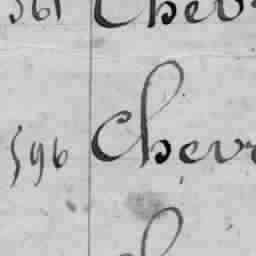 361 Chev
596 Chevr